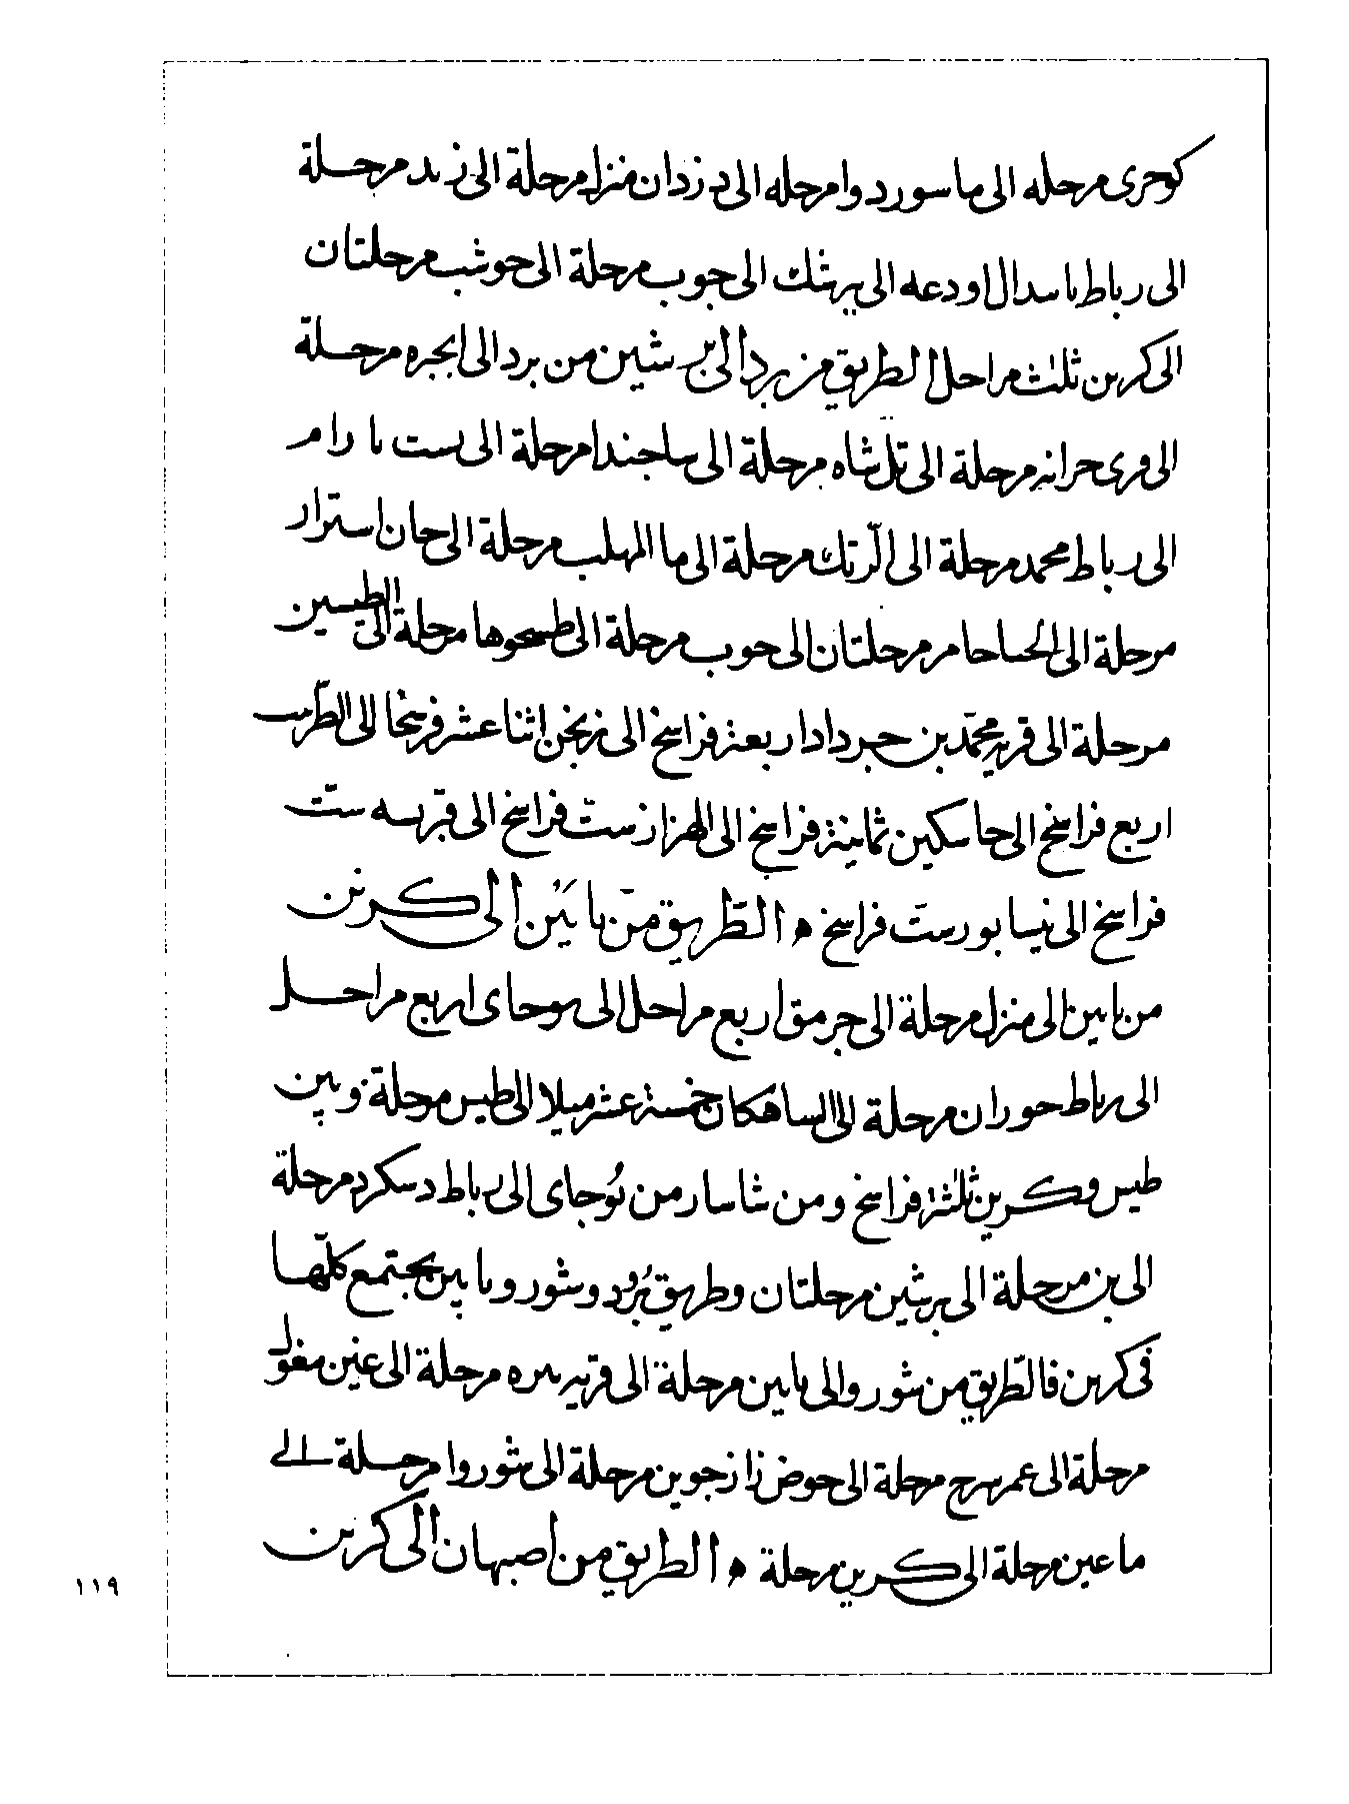 كوحرى مرحله الى ماسوردوا مرحله الى دزدان منزل مرحلة الى زىد مرحلة
الى رباط باسدال اودعه الى يرشك الى جوب مرحلة الى حوشب مرحلتان
الى كرىن ثلث مراحل الطريق من يزد الى شين من برد الى ابجره مرحلة
الى قرى حرانه مرحلة الى تل شاه مرحلة الى ساجندا مرحلة الى بست بادام
الى رباط محمد مرحلة الى الرتك مرحلة الى ما المهلب مرحلة الى حان استرار
مرحلة الى مرحلتان الى حوب مرحلة الى مرحلة الى الطبسين
مرحلة الى قرية محمد بن جرداد اربعة فراسخ الى زنجن اثنا عشر فرسخا الى الطرسب
اربع فراسخ الى حاسكين ثمانية فراسخ الى الهزار ست فراسخ الى قريه ست
فراسخ الى نيسابور ست فراسخ ه الطريق من نايين الى كرين
من نايين الى منزل مرحلة الى جرمق اربع مراحل الى نوحاى اربع مراحل
الى رباط حوران مرحلة الى الساهكان خمسة عشر ميلا الى طبس مرحلة وبين
طبس وكرين ثلثة فراسخ ومن شاسار من نوجاى الى رباط دسكرد مرحلة
الى بن مرحلة الى برشين مرحلتان وطريق يزد وشور ونايين يجتمع كلها
فى كرىن فالطريق من شوروا الى نايين مرحلة الى قريه بره مرحلة الى عين مغول
مرحلة الى عمر سرح مرحلة الى حوض زازجوين مرحلة الى شوروا مرحلة الى
ماعين مرحلة الى كرين مرحلة ه الطريق من اصبهان الى كرين
١١٩